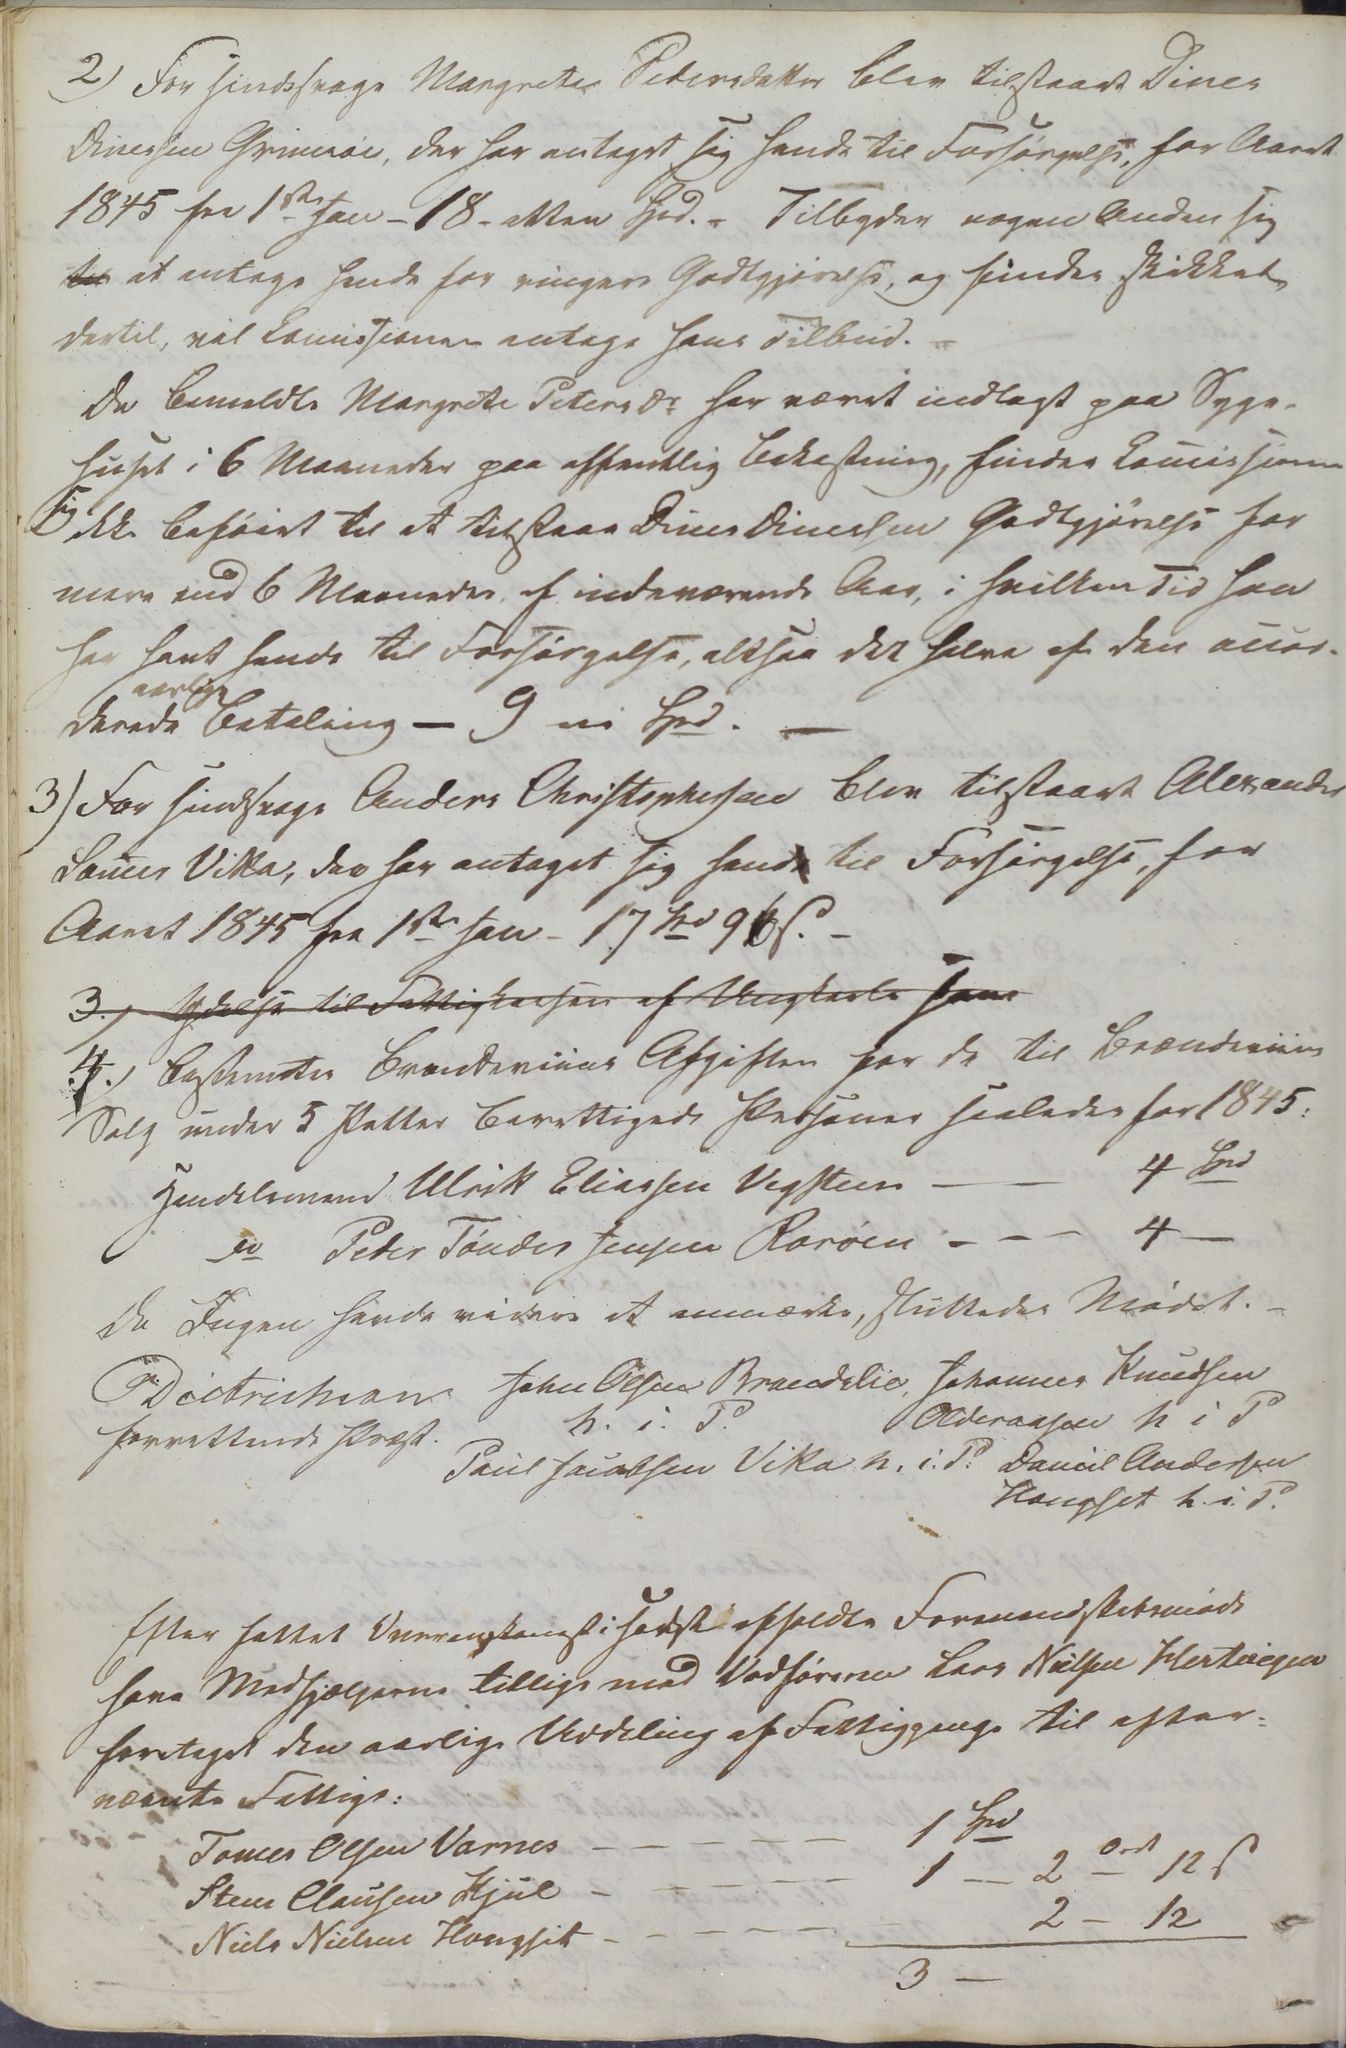 2) For sindssvage Margrethe Pedersdatter blev tilstaaet Dines
Dinessen Grimsøe, der har antaget sig hende til Forsørgelse, for Aaret
1845 fra 1ste Jan – 18 – atten Spd. – Tilbyder nogen Anden sig
til at antage hende for ringere Godtgjørelse, og findes skikket
dertil, vil Comissionen antage hans Tilbud. –
Da bemeldte Margrete Petersdr har været indlagt paa Syge-
huset i 6 Maaneder paa offentlig Bekostning, finder Comissionen
sig ikke beføiet til at tilstaae Dines Dinessen Godtgjørelse for
mere end 6 Maaneder af indeværende Aar, i hvilken Tid han
har havt hende til Forsørgelse, altsaa det halve af den accor-
aarlige
derede Betaling – 9 ni Spd. –
3) For sindssvage Anders Christophersen blev tilstaaet Alexander
Comes Vika, der har antaget sig ham til Forsørgelse, for
Aaret 1845 fra 1ste Jan – 17 Spd 96 s. –
3.) Ydelse til Fattigkassen af Ungkarle som
4.) Bestemtes Brændeviins Afgiften for de til Brændeviins
Salg under 5 Potter berettigede Personer saaledes for 1845:
Handelsmand Ulrik Eliassen Vigsteen – – 4 Spd
do Peder Tönder Jensen Rorøen – – – 4 –
Da Ingen havde videre at anmærke, sluttedes Mødet. –
Dietrichson John Olsen Brændelie, Johannes Knudsen
forrettende Præst. h. i. P. Olderaasen h i P
Paul Jacobsen Vika h. i. P. Daniel Andersen
Hougset h. i. P.
Efter fattet Overenskomst i sidst afholdte Formandskabsmøde
have Medhjælperne tillige med Ordføreren Lars Nielsen Hertvigen
foretaget den aarlige Uddeling af Fattigpenge til efter-
nævnte Fattige:
Tomes Olsen Varnes – – – – – 1 Spd
Steen Clausen Kjul – – – – – 1 – 2 Ort 12 s
Niels Nielsen Hougset – – – – – 2 – 12
3 –